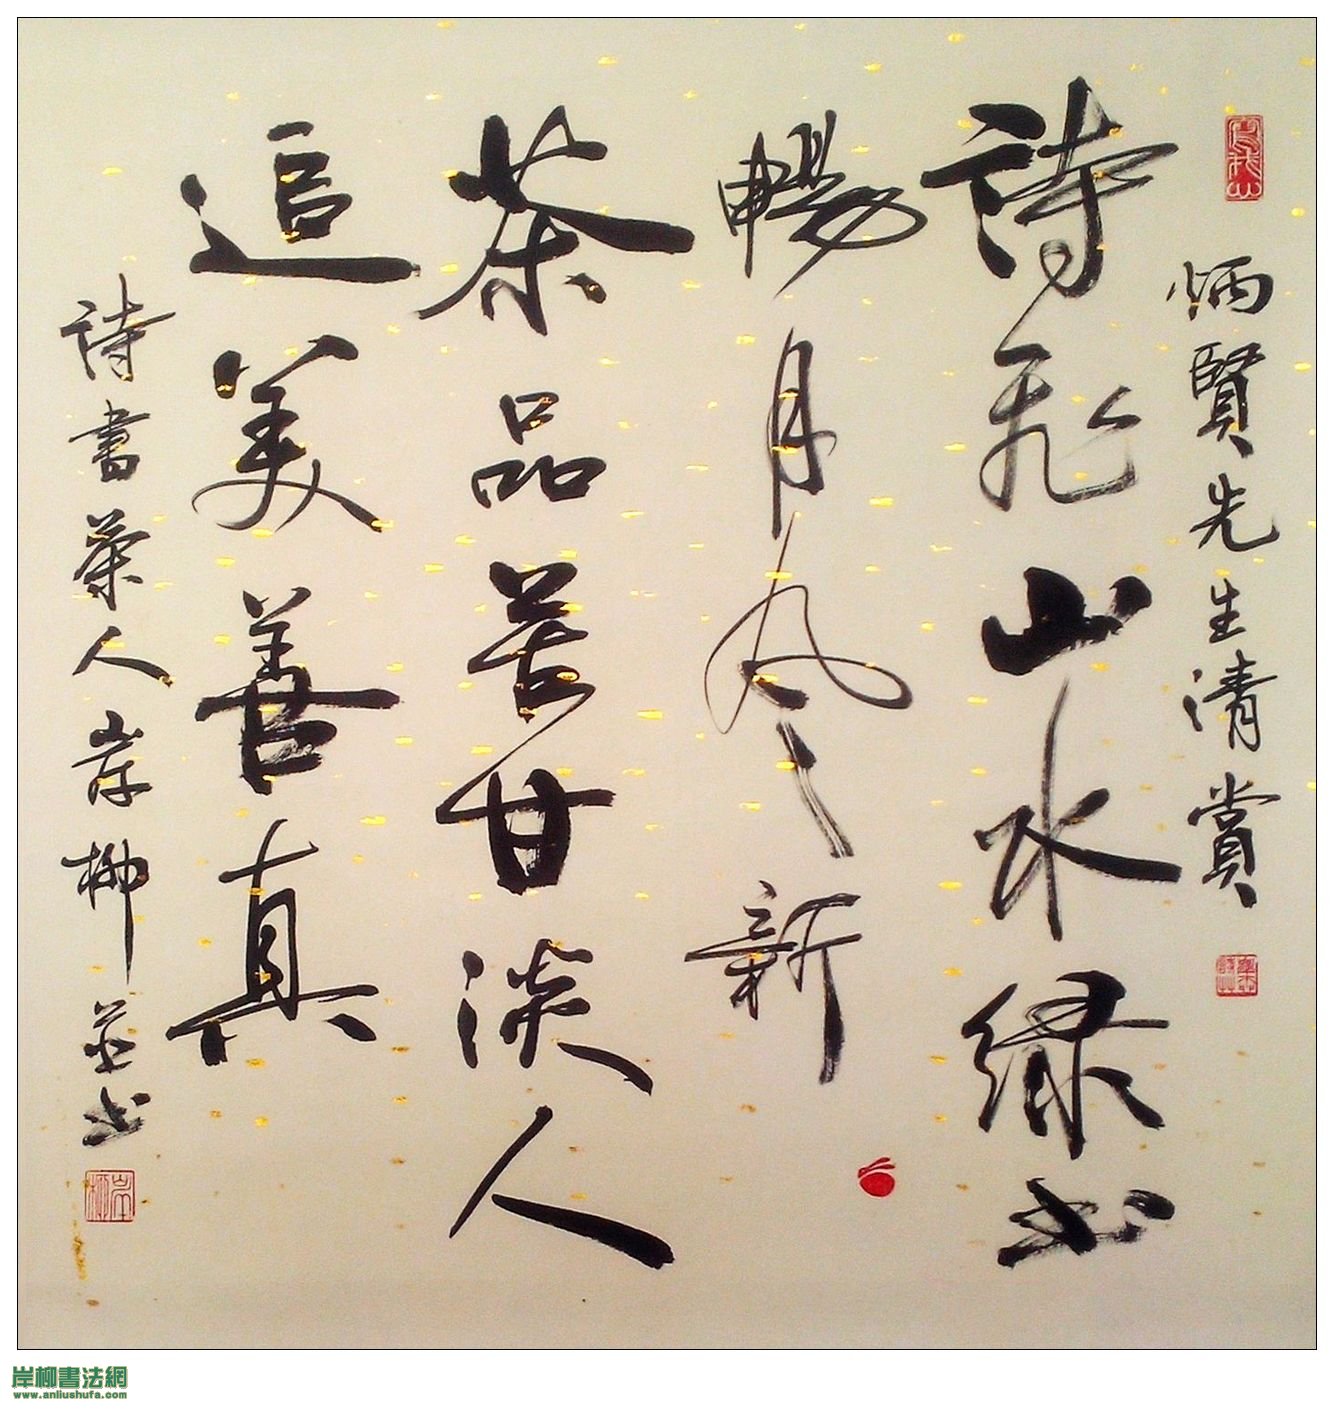 炳賢先生清賞
詩飛山水綠书
暢月风新
茶品苦甘淡人
追美善真
詩書茶人岸柳並书
岸柳
岸柳書法網
www.anliushufa.com